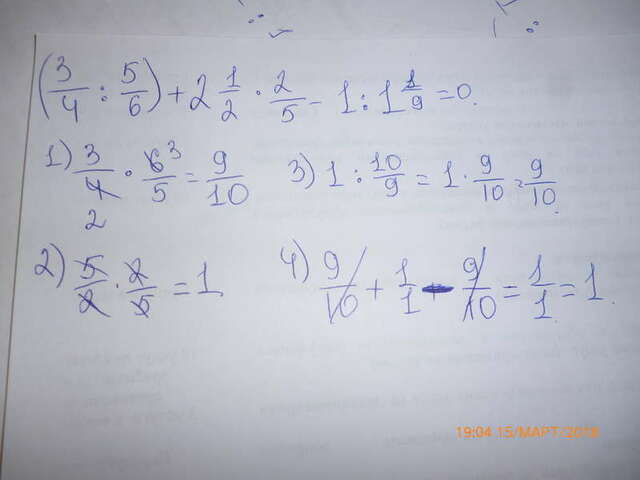 (3/4 : 5/6) + 2 1/2 · 2/5 - 1 : 1 1/9 = 0.
1) 3/4 · 6/5 = 9/10
2 3
3) 1 : 10/9 = 1 · 9/10 = 9/10.
2) 5/2 · 2/5 = 1
4) 9/10 + 1/1 - 9/10 = 1/1 = 1.
19:04 15/МАРТ/2018